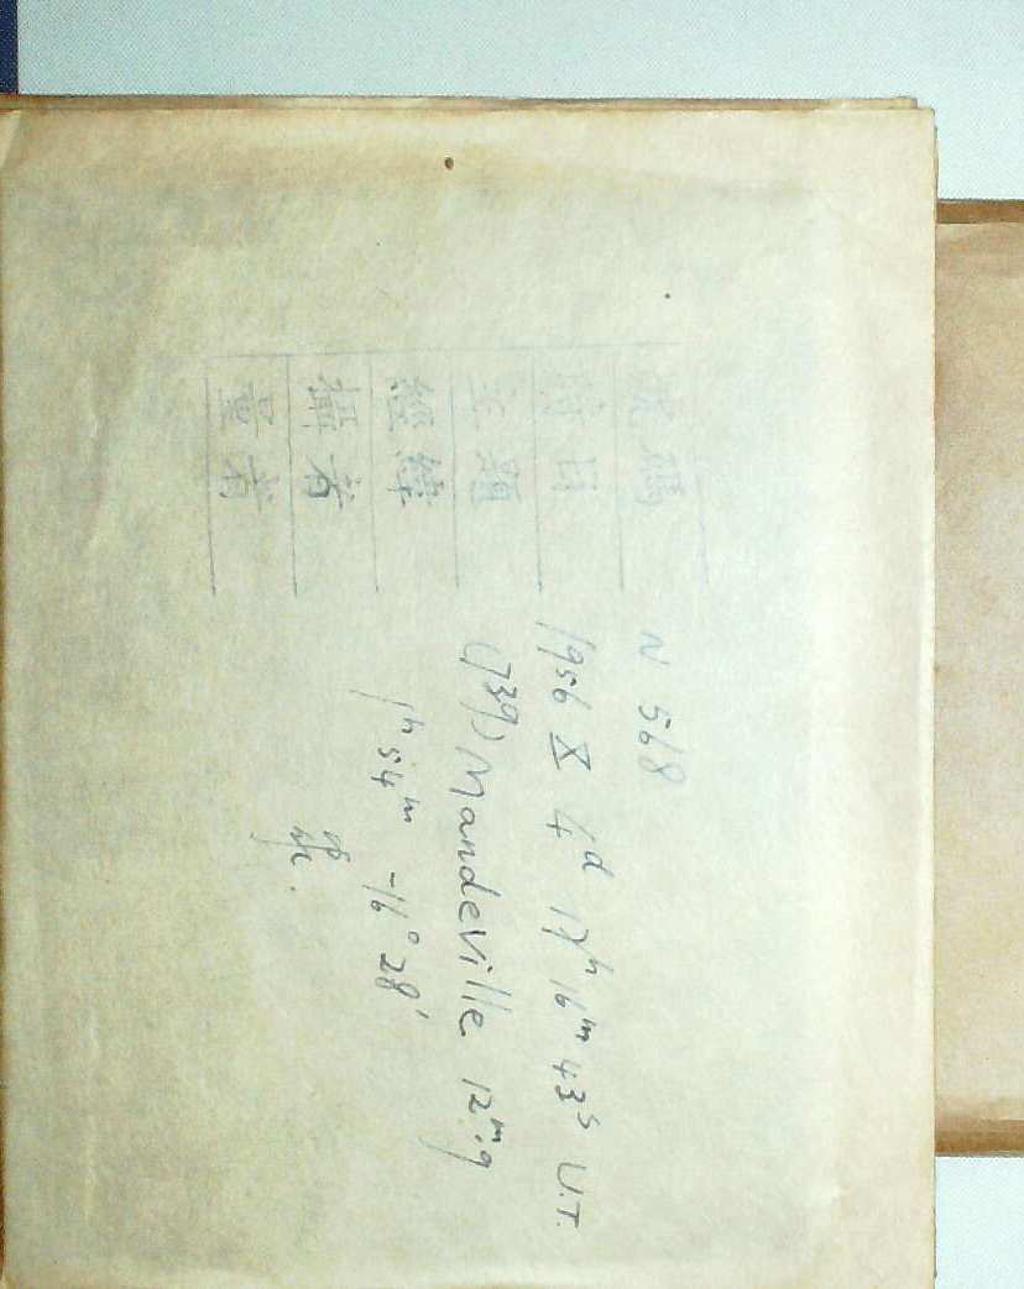 號碼 N 568
時日 1956 X 4ᵈ 17ʰ 16ᵐ 43ˢ U.T.
主題 (739) Mandeville 12ᵐ.9
經緯 1ʰ54ᵐ -16°28'
攝者
量者